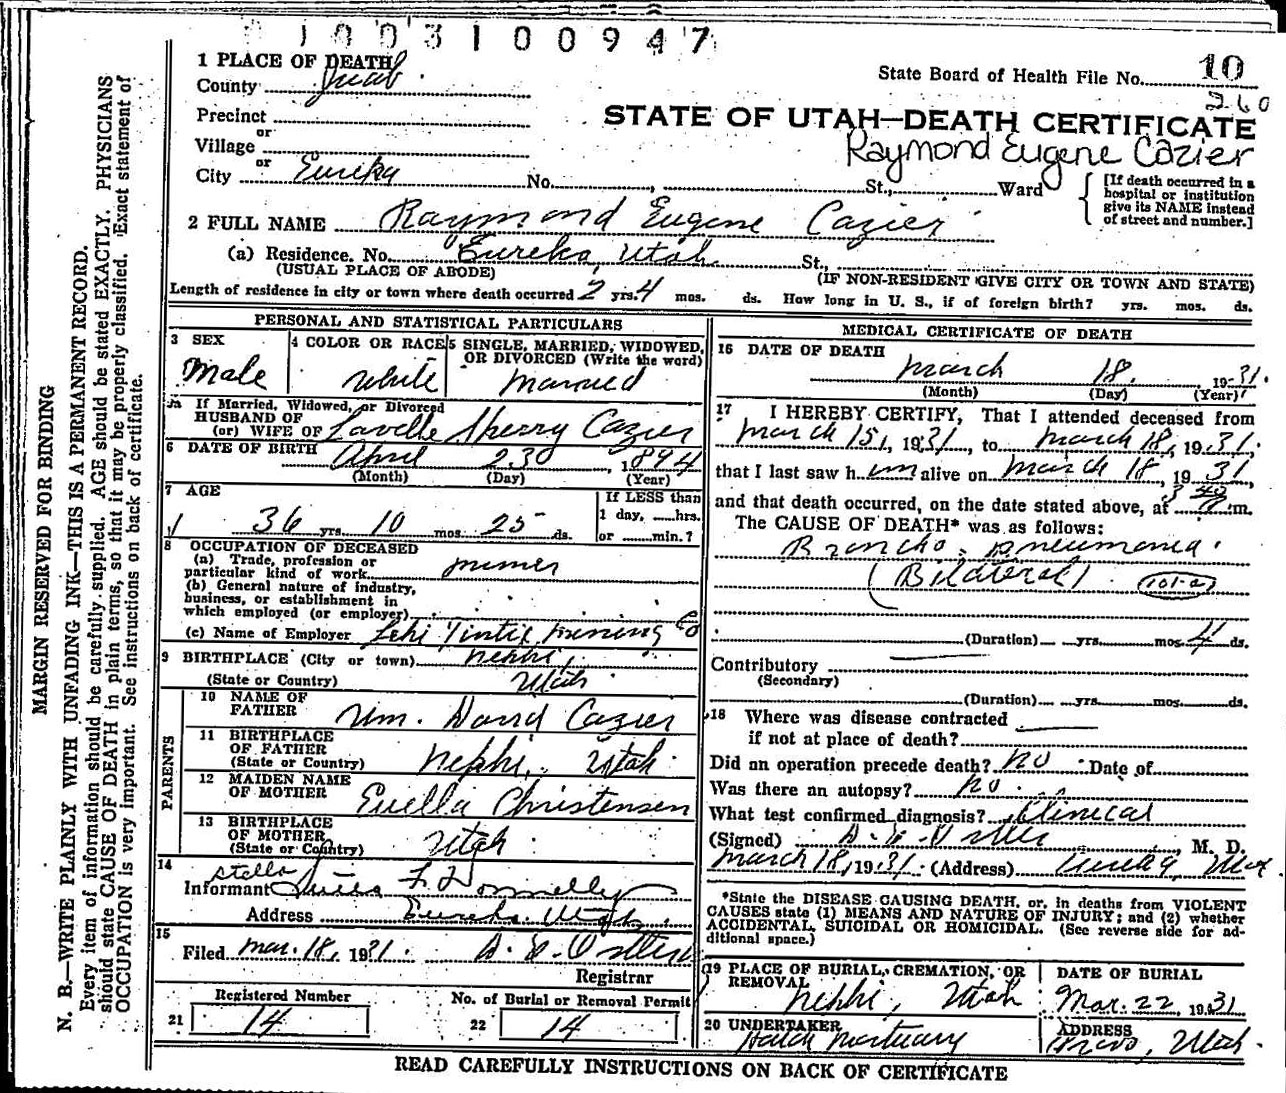 1003100947
1 PLACE OF DEATH
County Juab
State Board of Health File No. 10
260
Precinct
or
Village
or
City Eureka No. , St., Ward
STATE OF UTAH—DEATH CERTIFICATE
Raymond Eugene Cazier
[If death occurred in a
hospital or institution
give its NAME instead
of street and number.]
2 FULL NAME Raymond Eugene Cazier
(a) Residence. No. Eureka, Utah St.,
(USUAL PLACE OF ABODE) (IF NON-RESIDENT GIVE CITY OR TOWN AND STATE)
Length of residence in city or town where death occurred 2 yrs. 4 mos. ds. How long in U. S., if of foreign birth? yrs. mos. ds.
PERSONAL AND STATISTICAL PARTICULARS
3 SEX
Male
4 COLOR OR RACE
White
5 SINGLE, MARRIED, WIDOWED,
OR DIVORCED (Write the word)
Married
5a If Married, Widowed, or Divorced
HUSBAND OF
(or) WIFE OF Lavelle Sherry Cazier
6 DATE OF BIRTH April 23, 1894
(Month) (Day) (Year)
7 AGE
36 yrs. 10 mos. 25 ds.
If LESS than
1 day, hrs.
or min.?
8 OCCUPATION OF DECEASED
(a) Trade, profession or
particular kind of work miner
(b) General nature of industry,
business, or establishment in
which employed (or employer)
(c) Name of Employer Lehi Tintic Mining Co
9 BIRTHPLACE (City or town) Nephi,
(State or Country) Utah
PARENTS
10 NAME OF
FATHER Wm. David Cazier
11 BIRTHPLACE
OF FATHER
(State or Country) Nephi, Utah
12 MAIDEN NAME
OF MOTHER Euella Christensen
13 BIRTHPLACE
OF MOTHER
(State or Country) Utah
14
Stella
Informant F Donnelly
Address Eureka Utah
15
Filed Mar. 18, 1931
Registrar
Registered Number
21 14
No. of Burial or Removal Permit
22 14
MEDICAL CERTIFICATE OF DEATH
16 DATE OF DEATH
March 18, 1931.
(Month) (Day) (Year)
17 I HEREBY CERTIFY, That I attended deceased from
March 15, 1931, to March 18, 1931,
that I last saw h im alive on March 18, 1931,
and that death occurred, on the date stated above, at 3 40 m.
The CAUSE OF DEATH* was as follows:
Broncho. pneumonia.
(Bilateral) 101-a
(Duration) yrs. mos. 4 ds.
Contributory
(Secondary)
(Duration) yrs. mos. ds.
18 Where was disease contracted
if not at place of death?
Did an operation precede death? no Date of
Was there an autopsy? no
What test confirmed diagnosis? Clinical
(Signed) , M. D.
March 18, 1931. (Address) Eureka, Utah
*State the DISEASE CAUSING DEATH, or, in deaths from VIOLENT
CAUSES state (1) MEANS AND NATURE OF INJURY; and (2) whether
ACCIDENTAL, SUICIDAL OR HOMICIDAL. (See reverse side for ad-
ditional space.)
19 PLACE OF BURIAL, CREMATION, OR
REMOVAL
Nephi, Utah
DATE OF BURIAL
Mar. 22, 1931
20 UNDERTAKER
Hatch Mortuary
ADDRESS
Provo, Utah.
READ CAREFULLY INSTRUCTIONS ON BACK OF CERTIFICATE
MARGIN RESERVED FOR BINDING
N. B.—WRITE PLAINLY WITH UNFADING INK—THIS IS A PERMANENT RECORD.
Every item of information should be carefully supplied. AGE should be stated EXACTLY. PHYSICIANS
should state CAUSE OF DEATH in plain terms, so that it may be properly classified. Exact statement of
OCCUPATION is very important. See instructions on back of certificate.